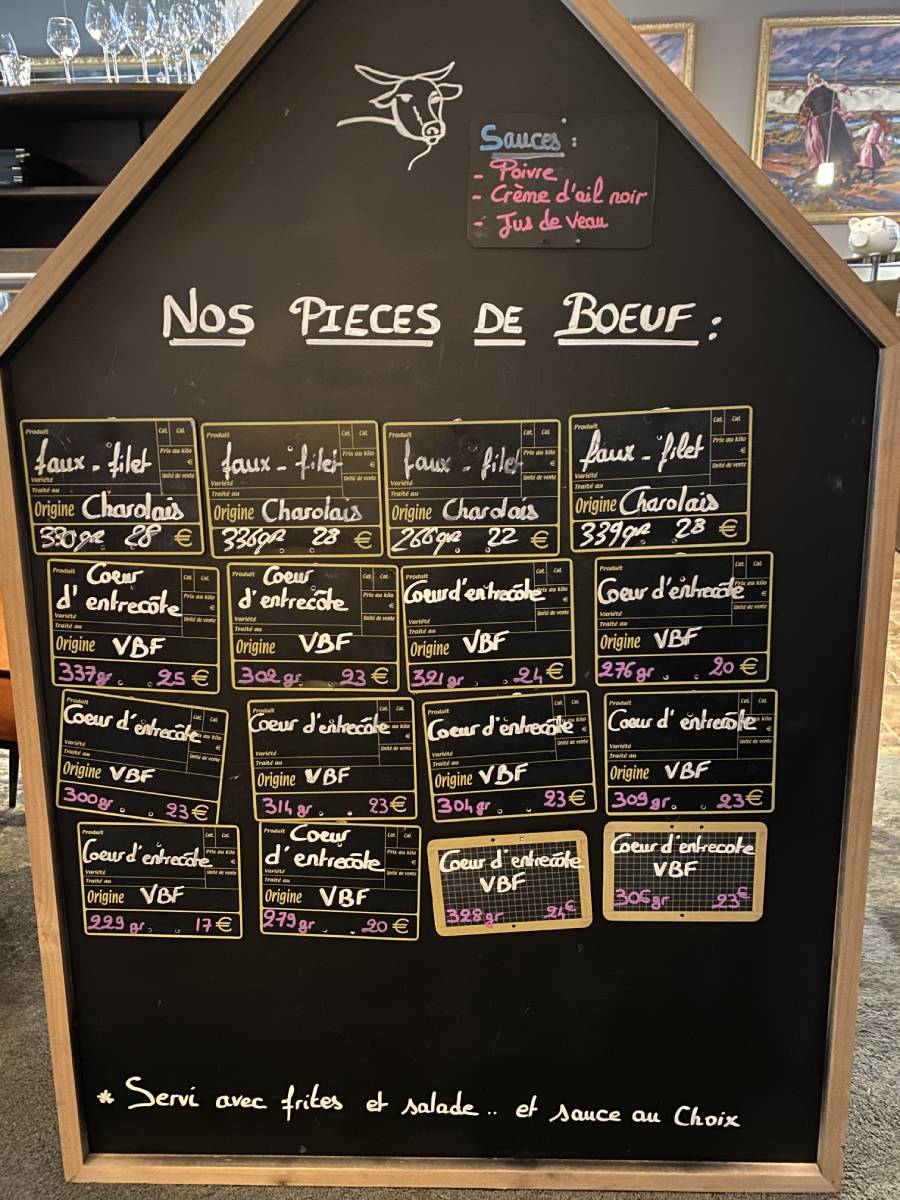 Sauces :
- Poivre
- Crème d'ail noir
- Jus de veau
NOS PIECES DE BOEUF :
Produit Cat. Cal.
faux-filet
Prix au kilo
€
Variété Unité de vente
Traité au
Origine Charolais
330gr 28 €
Produit Cat. Cal.
faux-filet
Prix au kilo
€
Variété Unité de vente
Traité au
Origine Charolais
336gr 28 €
Produit Cat. Cal.
faux-filet
Prix au kilo
€
Variété Unité de vente
Traité au
Origine Charolais
266gr 22 €
Produit Cat. Cal.
faux-filet
Prix au kilo
€
Variété Unité de vente
Traité au
Origine Charolais
339gr 28 €
Produit Cat. Cal.
Coeur
d'entrecôte
Prix au kilo
€
Variété Unité de vente
Traité au
Origine VBF
337gr 25 €
Produit Cat. Cal.
Coeur
d'entrecôte
Prix au kilo
€
Variété Unité de vente
Traité au
Origine VBF
302gr 23 €
Produit Cat. Cal.
Coeur d'entrecôte
Prix au kilo
€
Variété Unité de vente
Traité au
Origine VBF
321gr 24 €
Produit Cat. Cal.
Coeur d'entrecôte
Prix au kilo
€
Variété Unité de vente
Traité au
Origine VBF
276gr 20 €
Produit Cat. Cal.
Coeur d'entrecôte
au kilo
€
Variété Unité de vente
Traité au
Origine VBF
300gr 23 €
Produit Cat. Cal.
Coeur d'entrecôte
au kilo
€
Variété Unité de vente
Traité au
Origine VBF
314gr 23 €
Produit Cat. Cal.
Coeur d'entrecôte
kilo
€
Variété Unité de vente
Traité au
Origine VBF
304gr 23 €
Produit Cat. Cal.
Coeur d'entrecôte
kilo
€
Variété Unité de vente
Traité au
Origine VBF
309gr 23 €
Produit Cat. Cal.
Coeur d'entrecôte
Prix au kilo
€
Variété Unité de vente
Traité au
Origine VBF
229gr 17 €
Produit Cat. Cal.
Coeur
d'entrecôte
Prix au kilo
€
Variété Unité de vente
Traité au
Origine VBF
279gr 20 €
Coeur d'entrecôte
VBF
328gr 24€
Coeur d'entrecote
VBF
306gr 23€
* Servi avec frites et salade .. et sauce au Choix